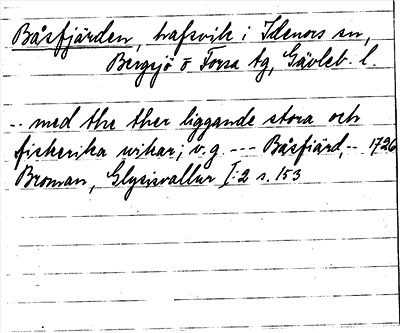 Båsfjärden, hafsvik i Idenors sn,
Bergsjö o Forsa tg, Gävleb. l.
-- med the ther liggande stora och
fiskerika wikar; v.g. --- Båsfiärd, -- 1726
Broman, Glysisvallur I:2 s. 153